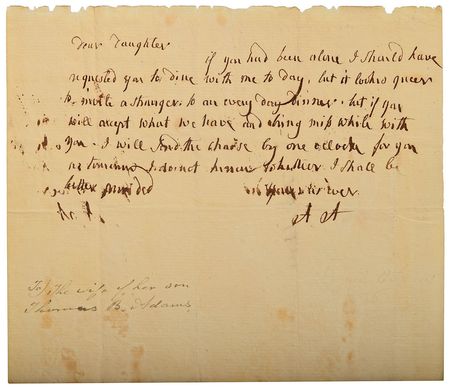 Dear Daughter
if you had been alone I should have
requested you to dine with me to day, but it looks queer
to invite a stranger to an every day Dinner. but if you
will accept what we have and bring miss while with
you. I will send the chaise by one oclock for you
as tomorrow I do not know whether I shall be
better provided
yours ever
A A
To the wife of her son
Thomas B. Adams